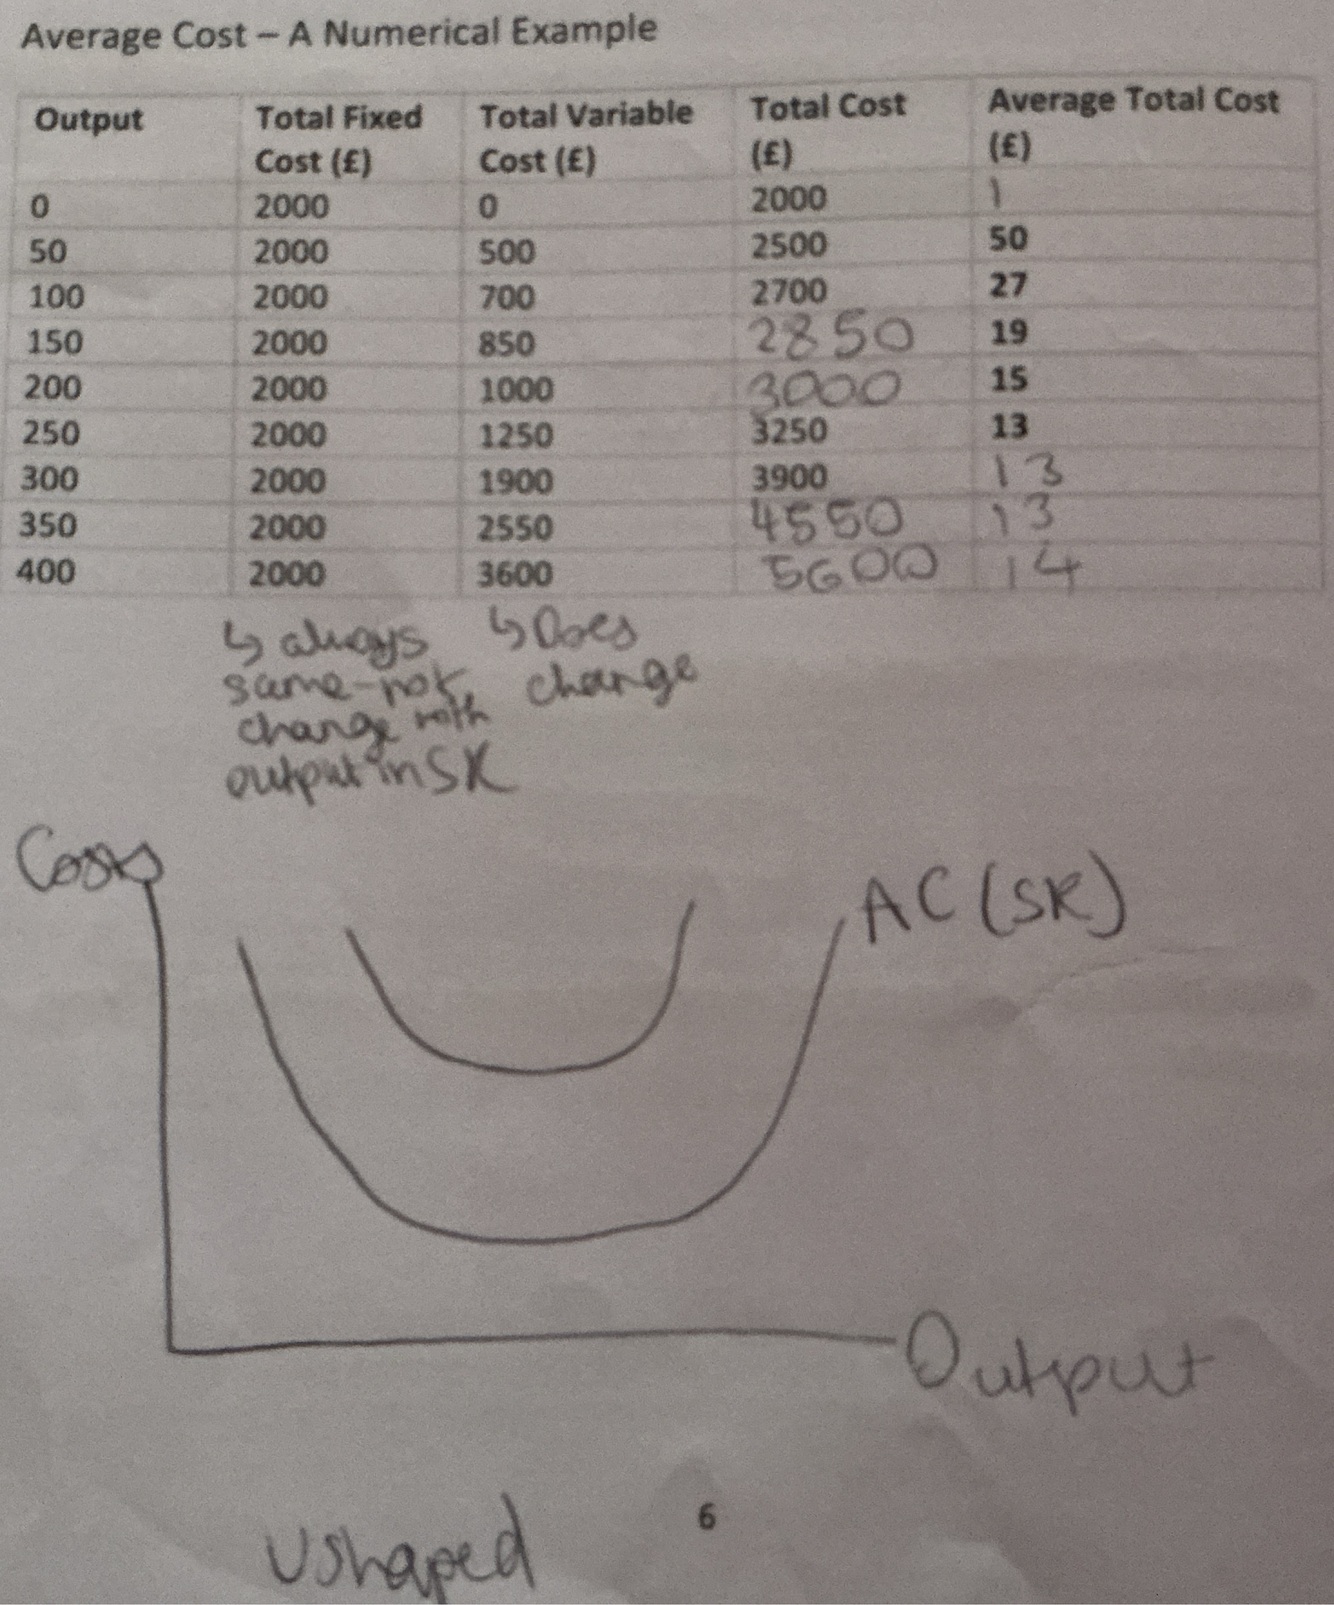 Average Cost – A Numerical Example
Output Total Fixed Cost (£) Total Variable Cost (£) Total Cost (£) Average Total Cost (£)
0 2000 0 2000 1
50 2000 500 2500 50
100 2000 700 2700 27
150 2000 850 2850 19
200 2000 1000 3000 15
250 2000 1250 3250 13
300 2000 1900 3900 13
350 2000 2550 4550 13
400 2000 3600 5600 14
↳ always
same-not
change with
output in SR
↳ Does
change
Costs
AC (SR)
Output
6
U shaped